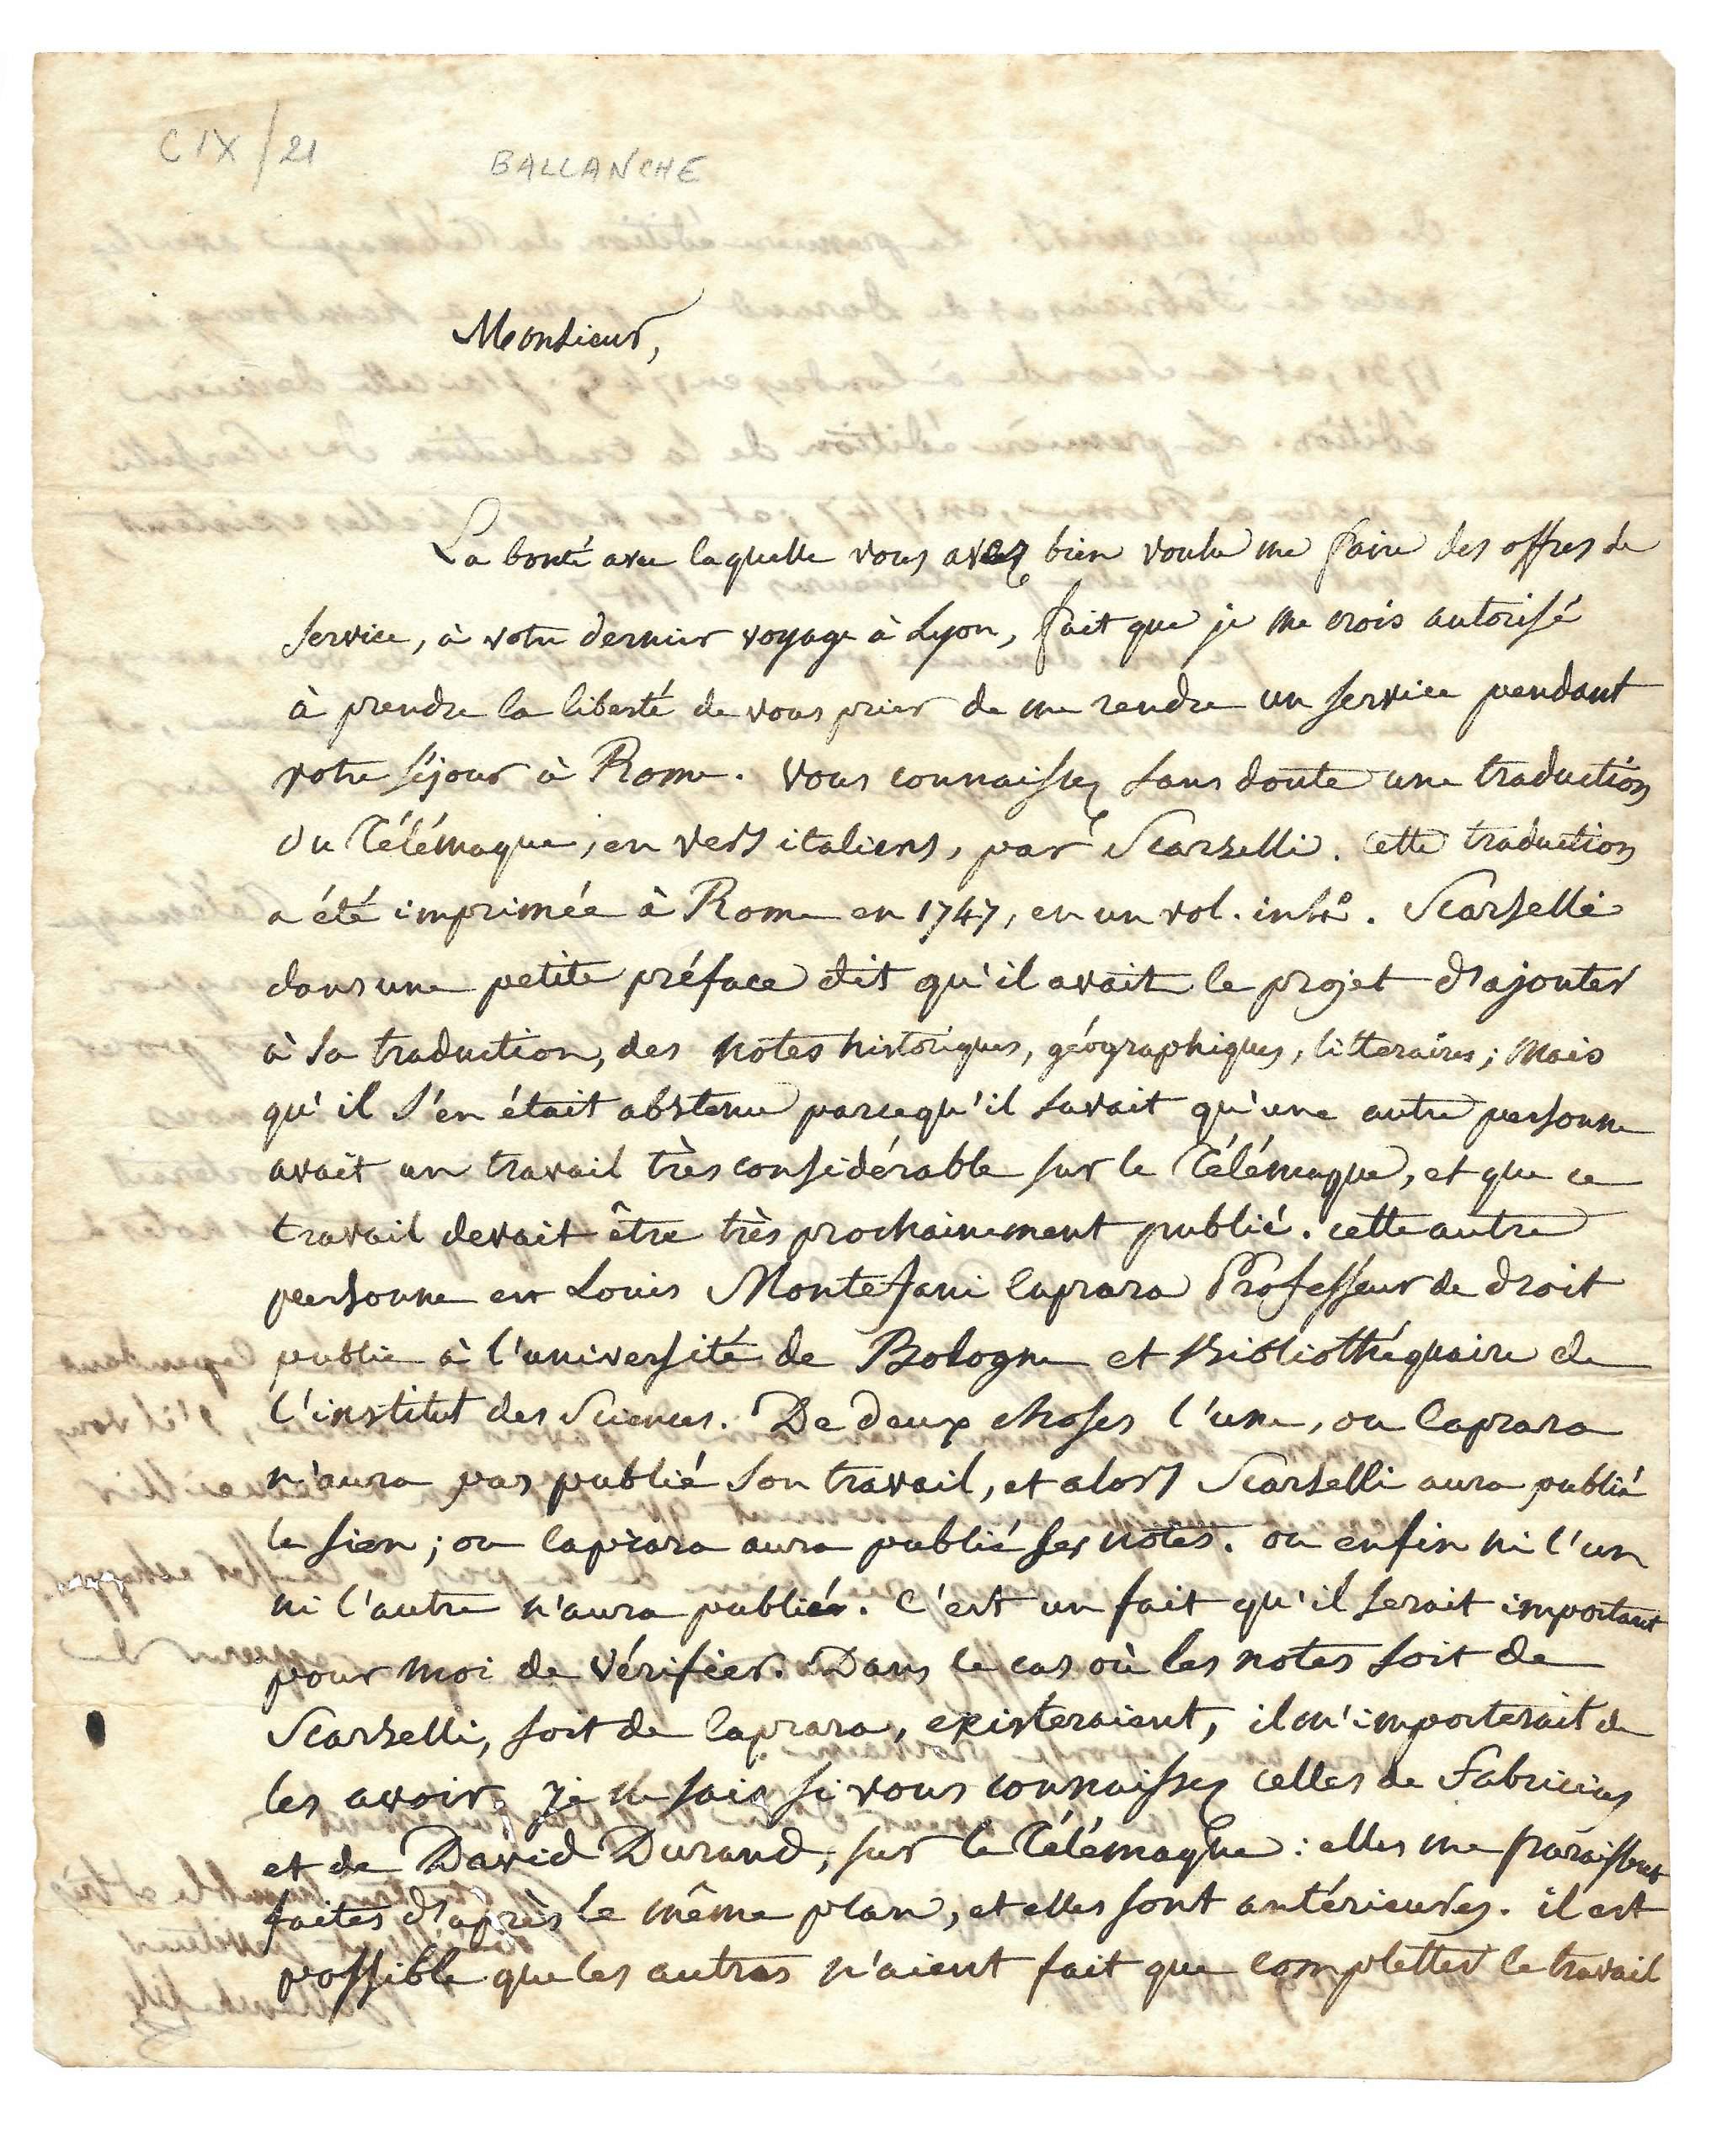 CIX/21
BALLANCHE
Monsieur,
La bonté avec laquelle vous avez bien voulu me faire des offres de
service, à votre dernier voyage à Lyon, fait que je me crois autorisé
à prendre la liberté de vous prier de me rendre un service pendant
votre séjour à Rome. Vous connaissez sans doute une traduction
du Télémaque, en vers italiens, par Scarselli. Cette traduction
a été imprimée à Rome en 1747, en un vol. in 4º. Scarselli
dans une petite préface dit qu'il avait le projet d'ajouter
à sa traduction, des notes historiques, géographiques, litteraires; mais
qu'il s'en était abstenu parcequ'il savait qu'une autre personne
avait un travail très considérable sur le Télémaque, et que ce
travail devait être très prochainement publié. cette autre
personne est Louis Montefani Caprara Professeur de droit
public à l'université de Bologne et Bibliothéquaire de
l'institut des Sciences. De deux choses l'une, ou Caprara
n'aura pas publié son travail, et alors Scarselli aura publié
le sien; ou Caprara aura publié ses notes. ou enfin ni l'un
ni l'autre n'aura publié. C'est un fait qu'il serait important
pour moi de vérifier. Dans le cas où les notes soit de
Scarselli, soit de Caprara, existeraient, il m'importerait de
les avoir. Je ne sais si vous connaissez celles de Fabricius
et de David Durand, sur le Télémaque: elles me paraissent
faites d'après le même plan, et elles sont antérieures. il est
possible que les autres n'aient fait que completter le travail